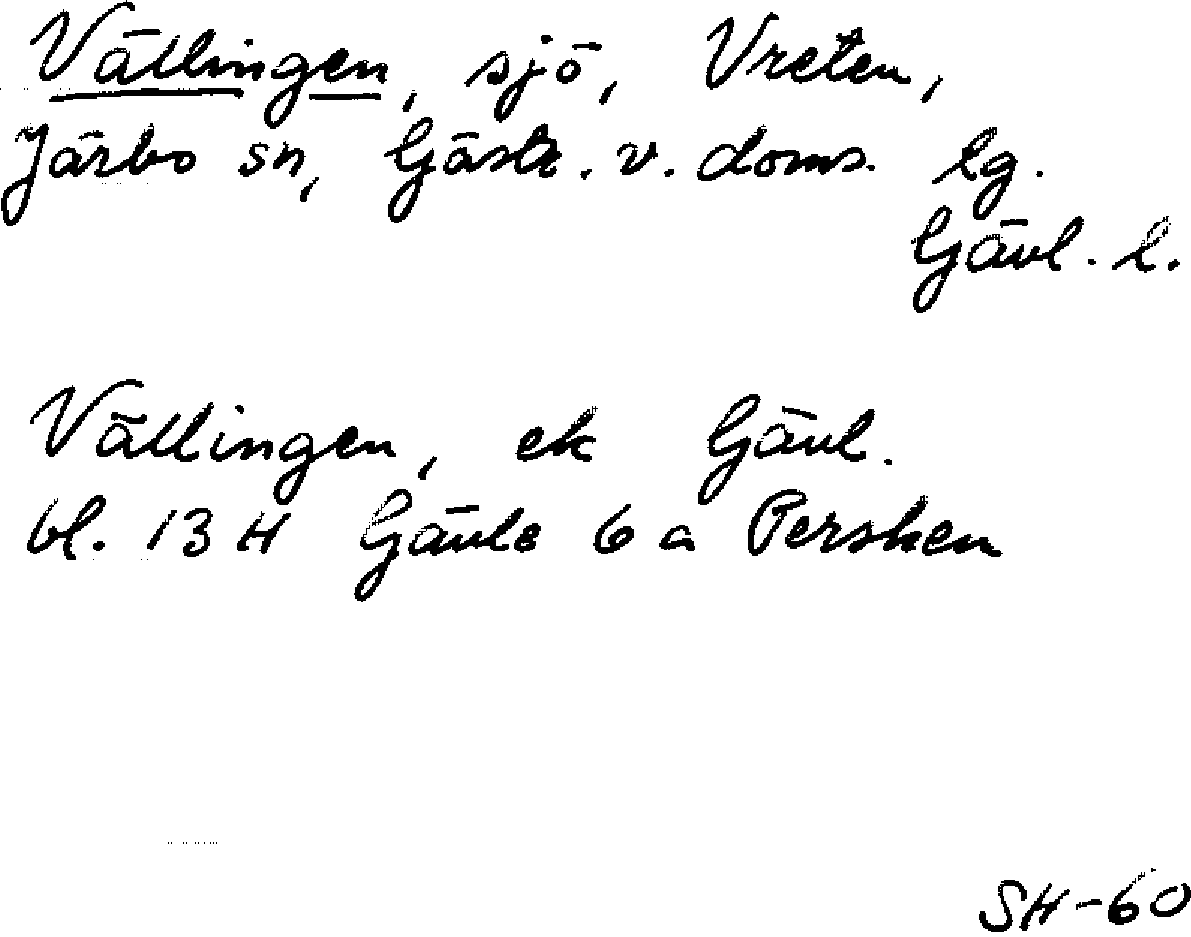 Vällingen, sjö, Vreten,
Järbo sn, Gästr. v. doms. lg.
Gävl. l.
Vällingen, ek Gävl.
bl. 13 H Gävle 6 a Persken
SH-60